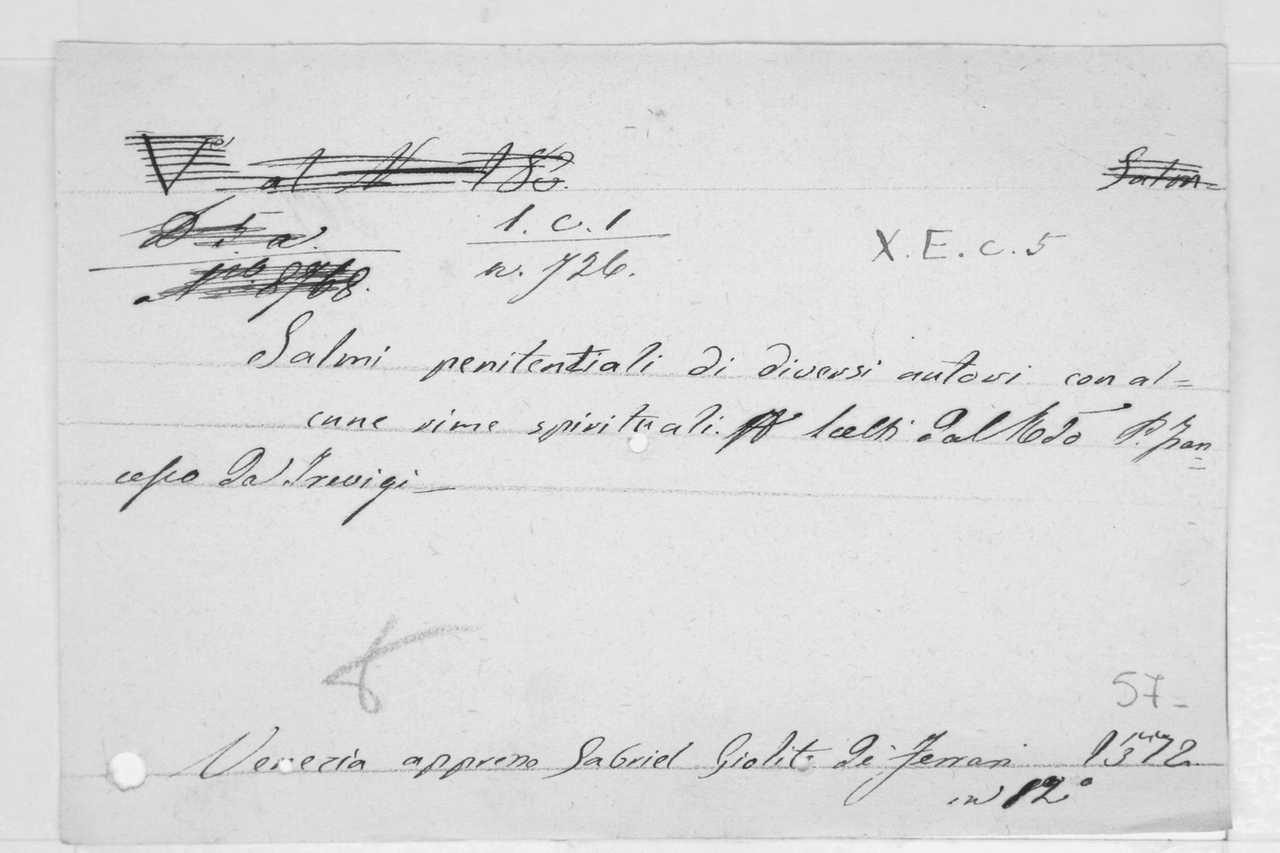 al N 180.
Salm=
D 5 a.
1. C. 1
X. E. c. 5
n. 726.
Salmi penitentiali di diversi autori con al=
cune rime spirituali. scelti dal Rdo P. Fran=
cesco da Trevigi
57-
Venezia appreno Gabriel Giolito de Ferrari 1572
in 12°